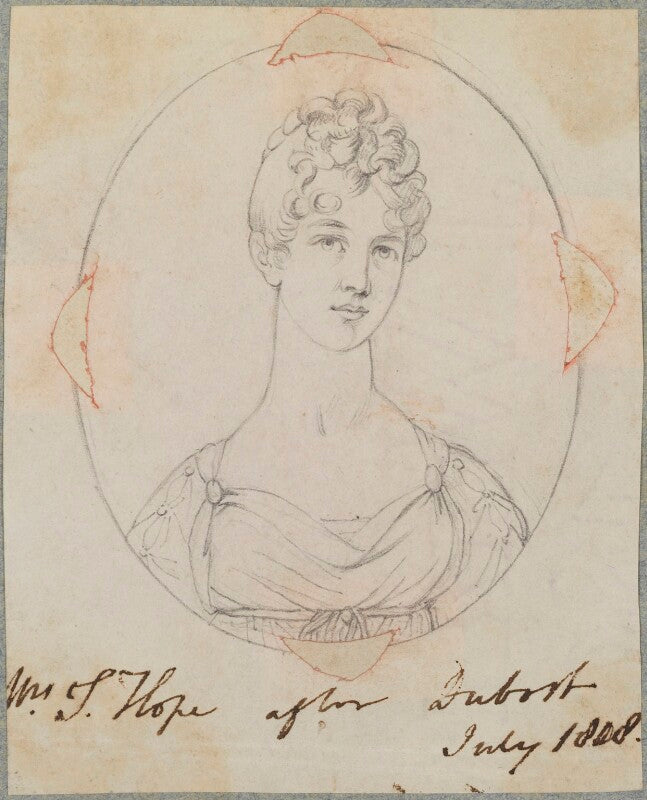 Mrs T. Hope after Dubost
July 1808.